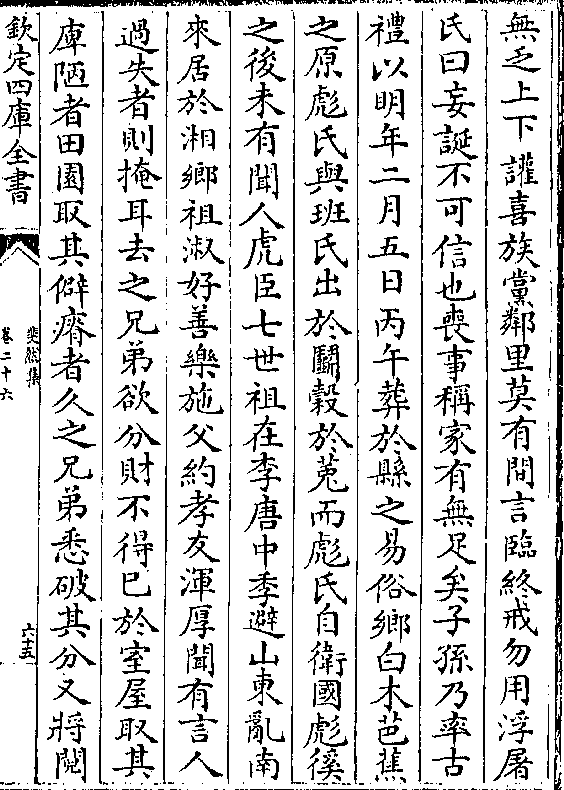 無乏上下讙喜族黨鄰里莫有間言臨終戒勿用浮屠
氏曰妄誕不可信也喪事稱家有無足矣子孫乃率古
禮以明年二月五日丙午葬於縣之易俗鄉白木芭蕉
之原彪氏與班氏出於鬭穀於菟而彪氏自衛國彪徯
之後未有聞人虎臣七世祖在李唐中季避山東亂南
來居於湘鄉祖淑好善樂施父約孝友渾厚聞有言人
過失者則掩耳去之兄弟欲分財不得已於室屋取其
庳陋者田園取其僻瘠者久之兄弟悉破其分又將鬩
欽定四庫全書
斐然集
卷二十六
六五